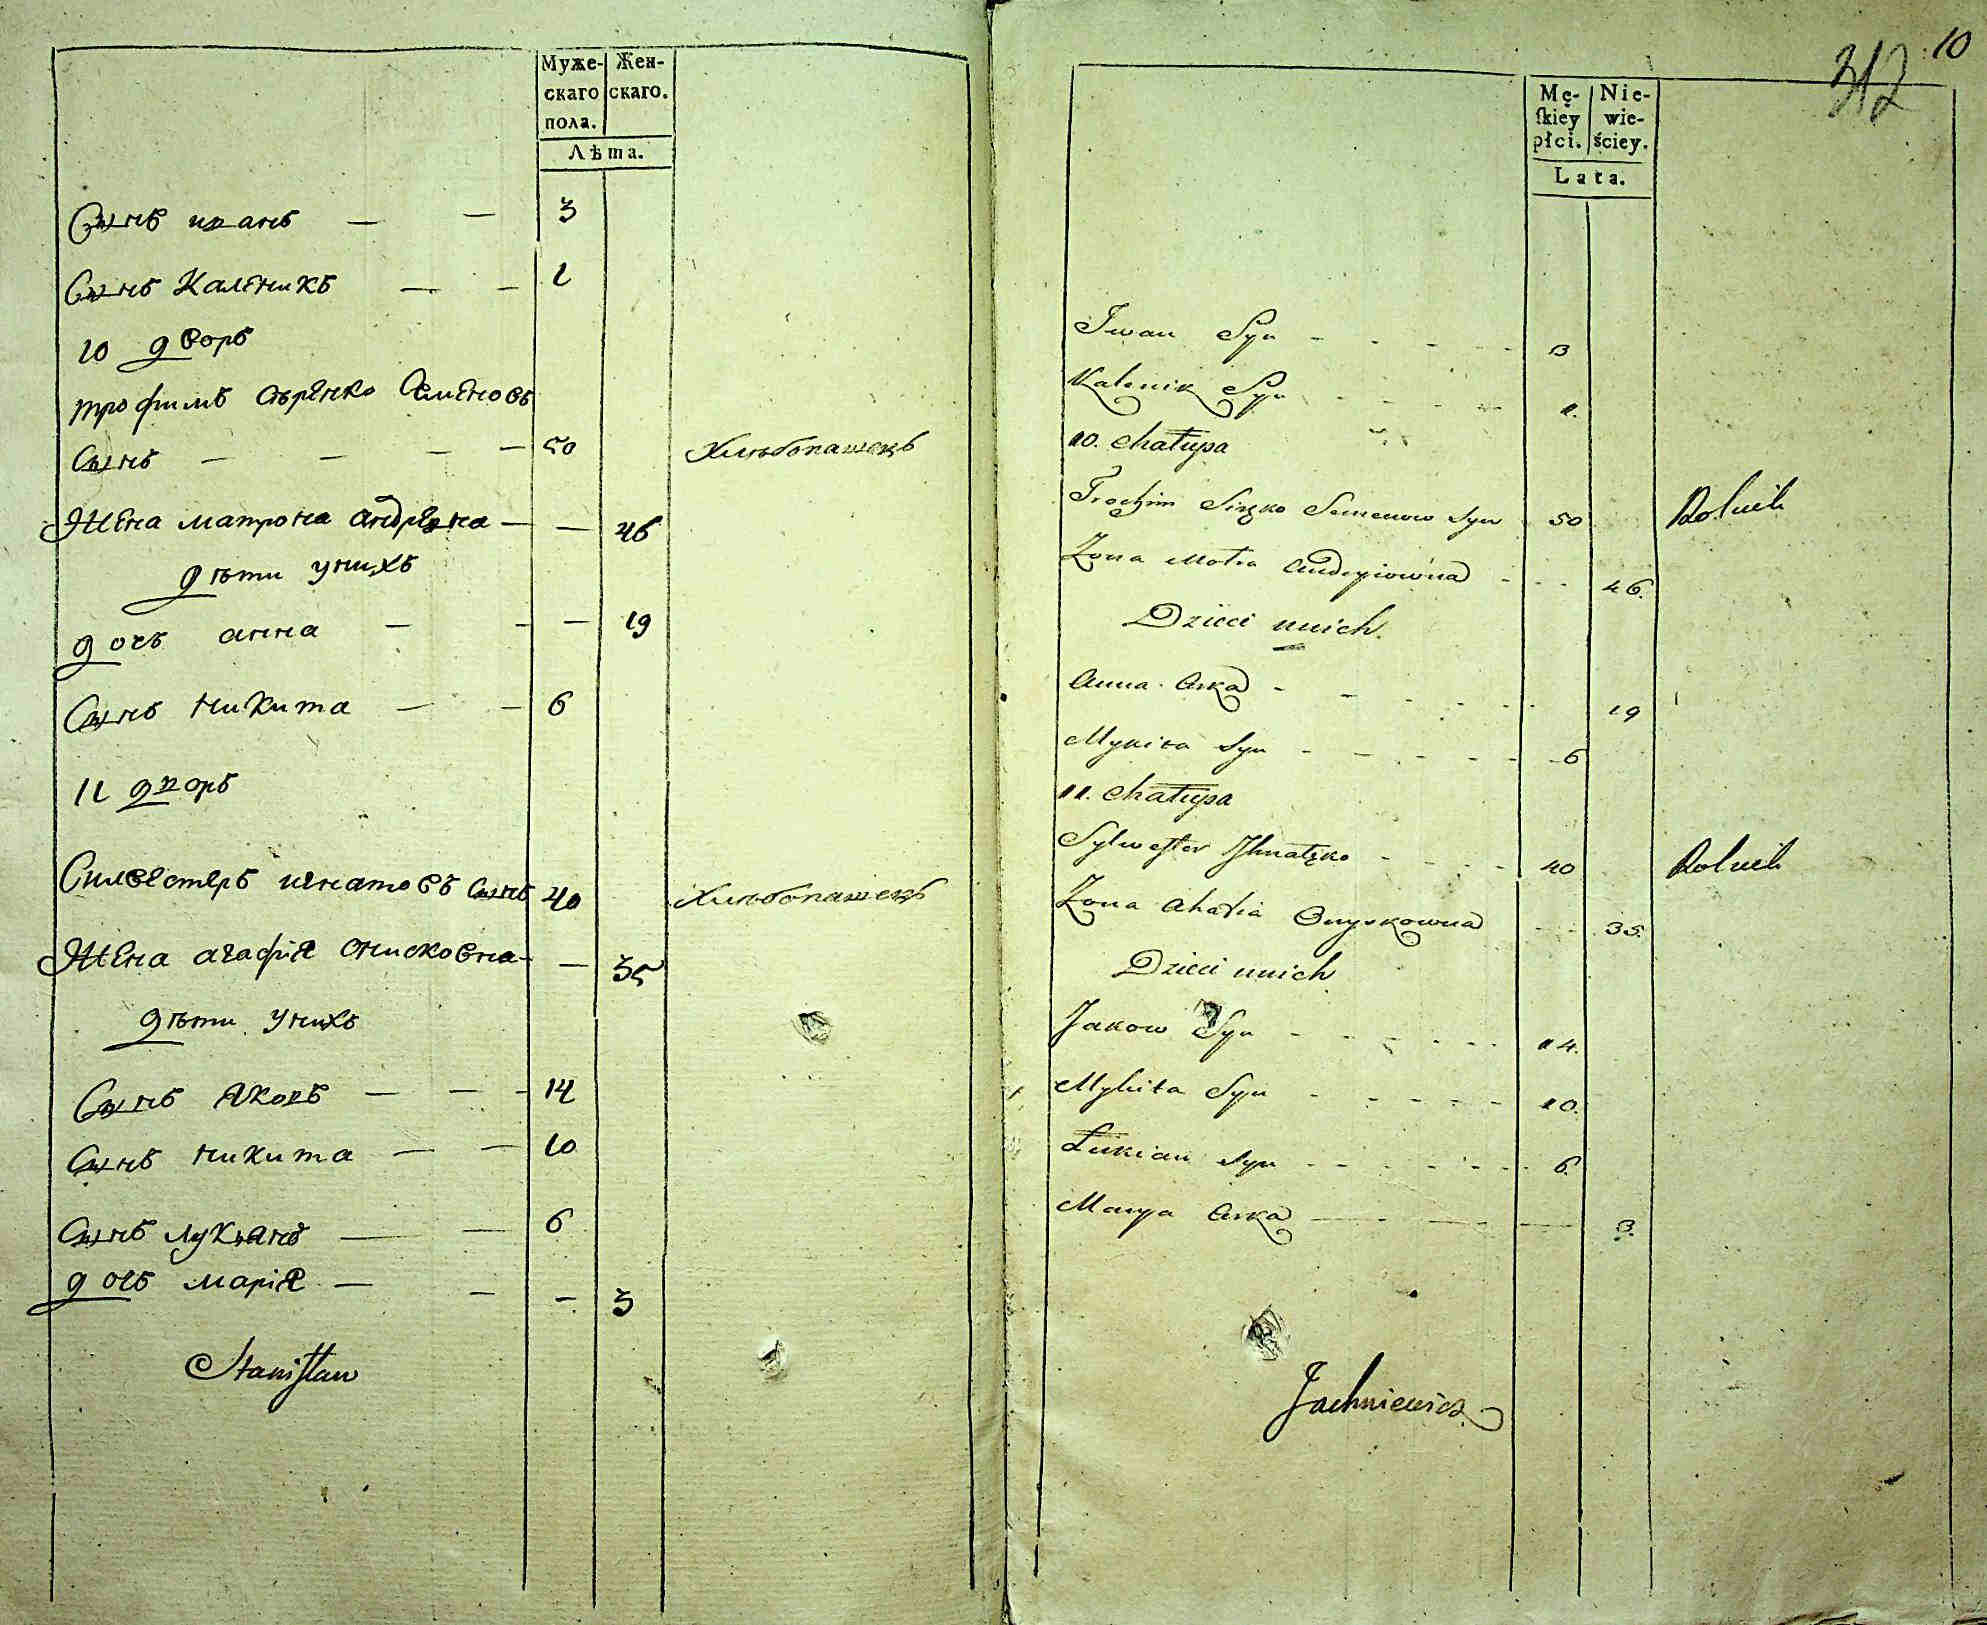 Муже-
скаго
пола.
Жен-
скаго.
Лѣта.
Сынъ иванъ — — 3
Сынъ Каленикъ — — 1
10 дворъ
трофимъ сѣренко Семеновъ
Сынъ — — — — 50 Хлѣбопашецъ
Жена матрона андреевна — — 46
дѣти унихъ
дочь анна — — — 19
Сынъ никита — — 6
11 дворъ
Силвестеръ игнатовъ сынъ 40 Хлѣбопашецъ
Жена агафія онисковна — — 35
дѣти унихъ
Сынъ яковъ — — — 14
Сынъ никита — — 10
Сынъ лукьянъ — — 6
дочь марія — — — 3
Stanisław
312 10
Mę-
skiey
płci.
Nie-
wie-
ściey.
Lata.
Iwan Syn - - - - - 3
Kalenik Syn - - - - - 1.
10. Chałupa
Trochim Sirzko Semenow Syn 50 Rolnik
Zona Motra Andryiowna - - - 46.
Dzieci unich.
Anna Crka - - - - - 19
Mykita Syn - - - - - 6
11. Chałupa
Sylwester Ihnatzko - - - - 40 Rolnik
Zona Ahafia Onyskowna - - 35.
Dzieci unich
Jakow Syn - - - - - 14.
Mykita Syn - - - - - 10.
Łukian Syn - - - - - 6.
Marya Crka — - - — 3.
Jachniewicz